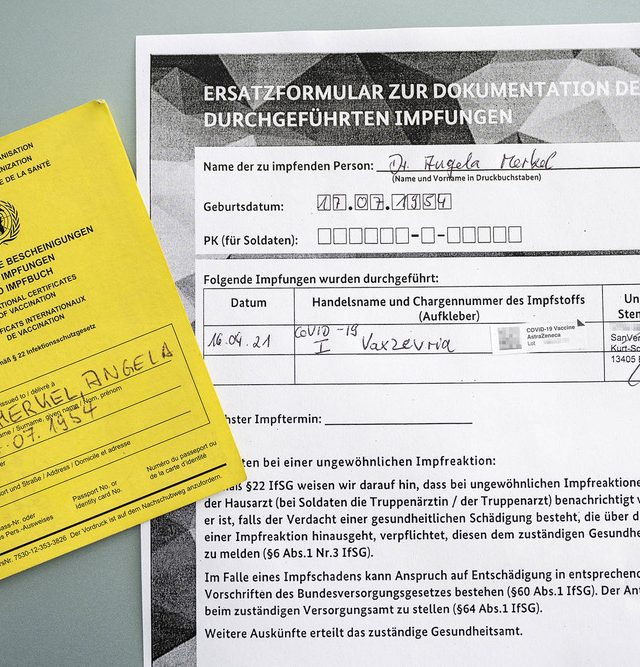 ANISATION
NIZATION
E DE LA SANTÉ
E BESCHEINIGUNGEN
IMPFUNGEN
D IMPFBUCH
ATIONAL CERTIFICATES
OF VACCINATION
FICATS INTERNATIONAUX
DE VACCINATION
mäß § 22 Infektionsschutzgesetz
issued to / délivré à
MERKEL, ANGELA
name / Surname, given name / Nom, prénom
.07.1954
ort und Straße / Address / Domicile et adresse
Passport No. or
Identity card No.
Numéro du passeport ou
de la carte d'identité
ass-Nr. oder
es Pers.-Ausweises
rsNr. 7530-12-353-3826 Der Vordruck ist auf dem Nachschubweg anzufordern.
ERSATZFORMULAR ZUR DOKUMENTATION DE
DURCHGEFÜHRTEN IMPFUNGEN
Name der zu impfenden Person: Dr. Angela Merkel
(Name und Vorname in Druckbuchstaben)
Geburtsdatum: 17.07.1954
PK (für Soldaten):
Folgende Impfungen wurden durchgeführt:
Datum Handelsname und Chargennummer des Impfstoffs (Aufkleber) Un
Stem
16.04.21 COVID-19 I Vaxzevria
COVID-19 Vaccine
AstraZeneca
Lot
SanVer
Kurt-Sc
13405 B
hster Impftermin:
ten bei einer ungewöhnlichen Impfreaktion:
äß §22 IfSG weisen wir darauf hin, dass bei ungewöhnlichen Impfreaktione
der Hausarzt (bei Soldaten die Truppenärztin / der Truppenarzt) benachrichtigt
er ist, falls der Verdacht einer gesundheitlichen Schädigung besteht, die über d
einer Impfreaktion hinausgeht, verpflichtet, diesen dem zuständigen Gesundhe
zu melden (§6 Abs.1 Nr.3 IfSG).
Im Falle eines Impfschadens kann Anspruch auf Entschädigung in entsprechen
Vorschriften des Bundesversorgungsgesetzes bestehen (§60 Abs.1 IfSG). Der Ant
beim zuständigen Versorgungsamt zu stellen (§64 Abs.1 IfSG).
Weitere Auskünfte erteilt das zuständige Gesundheitsamt.